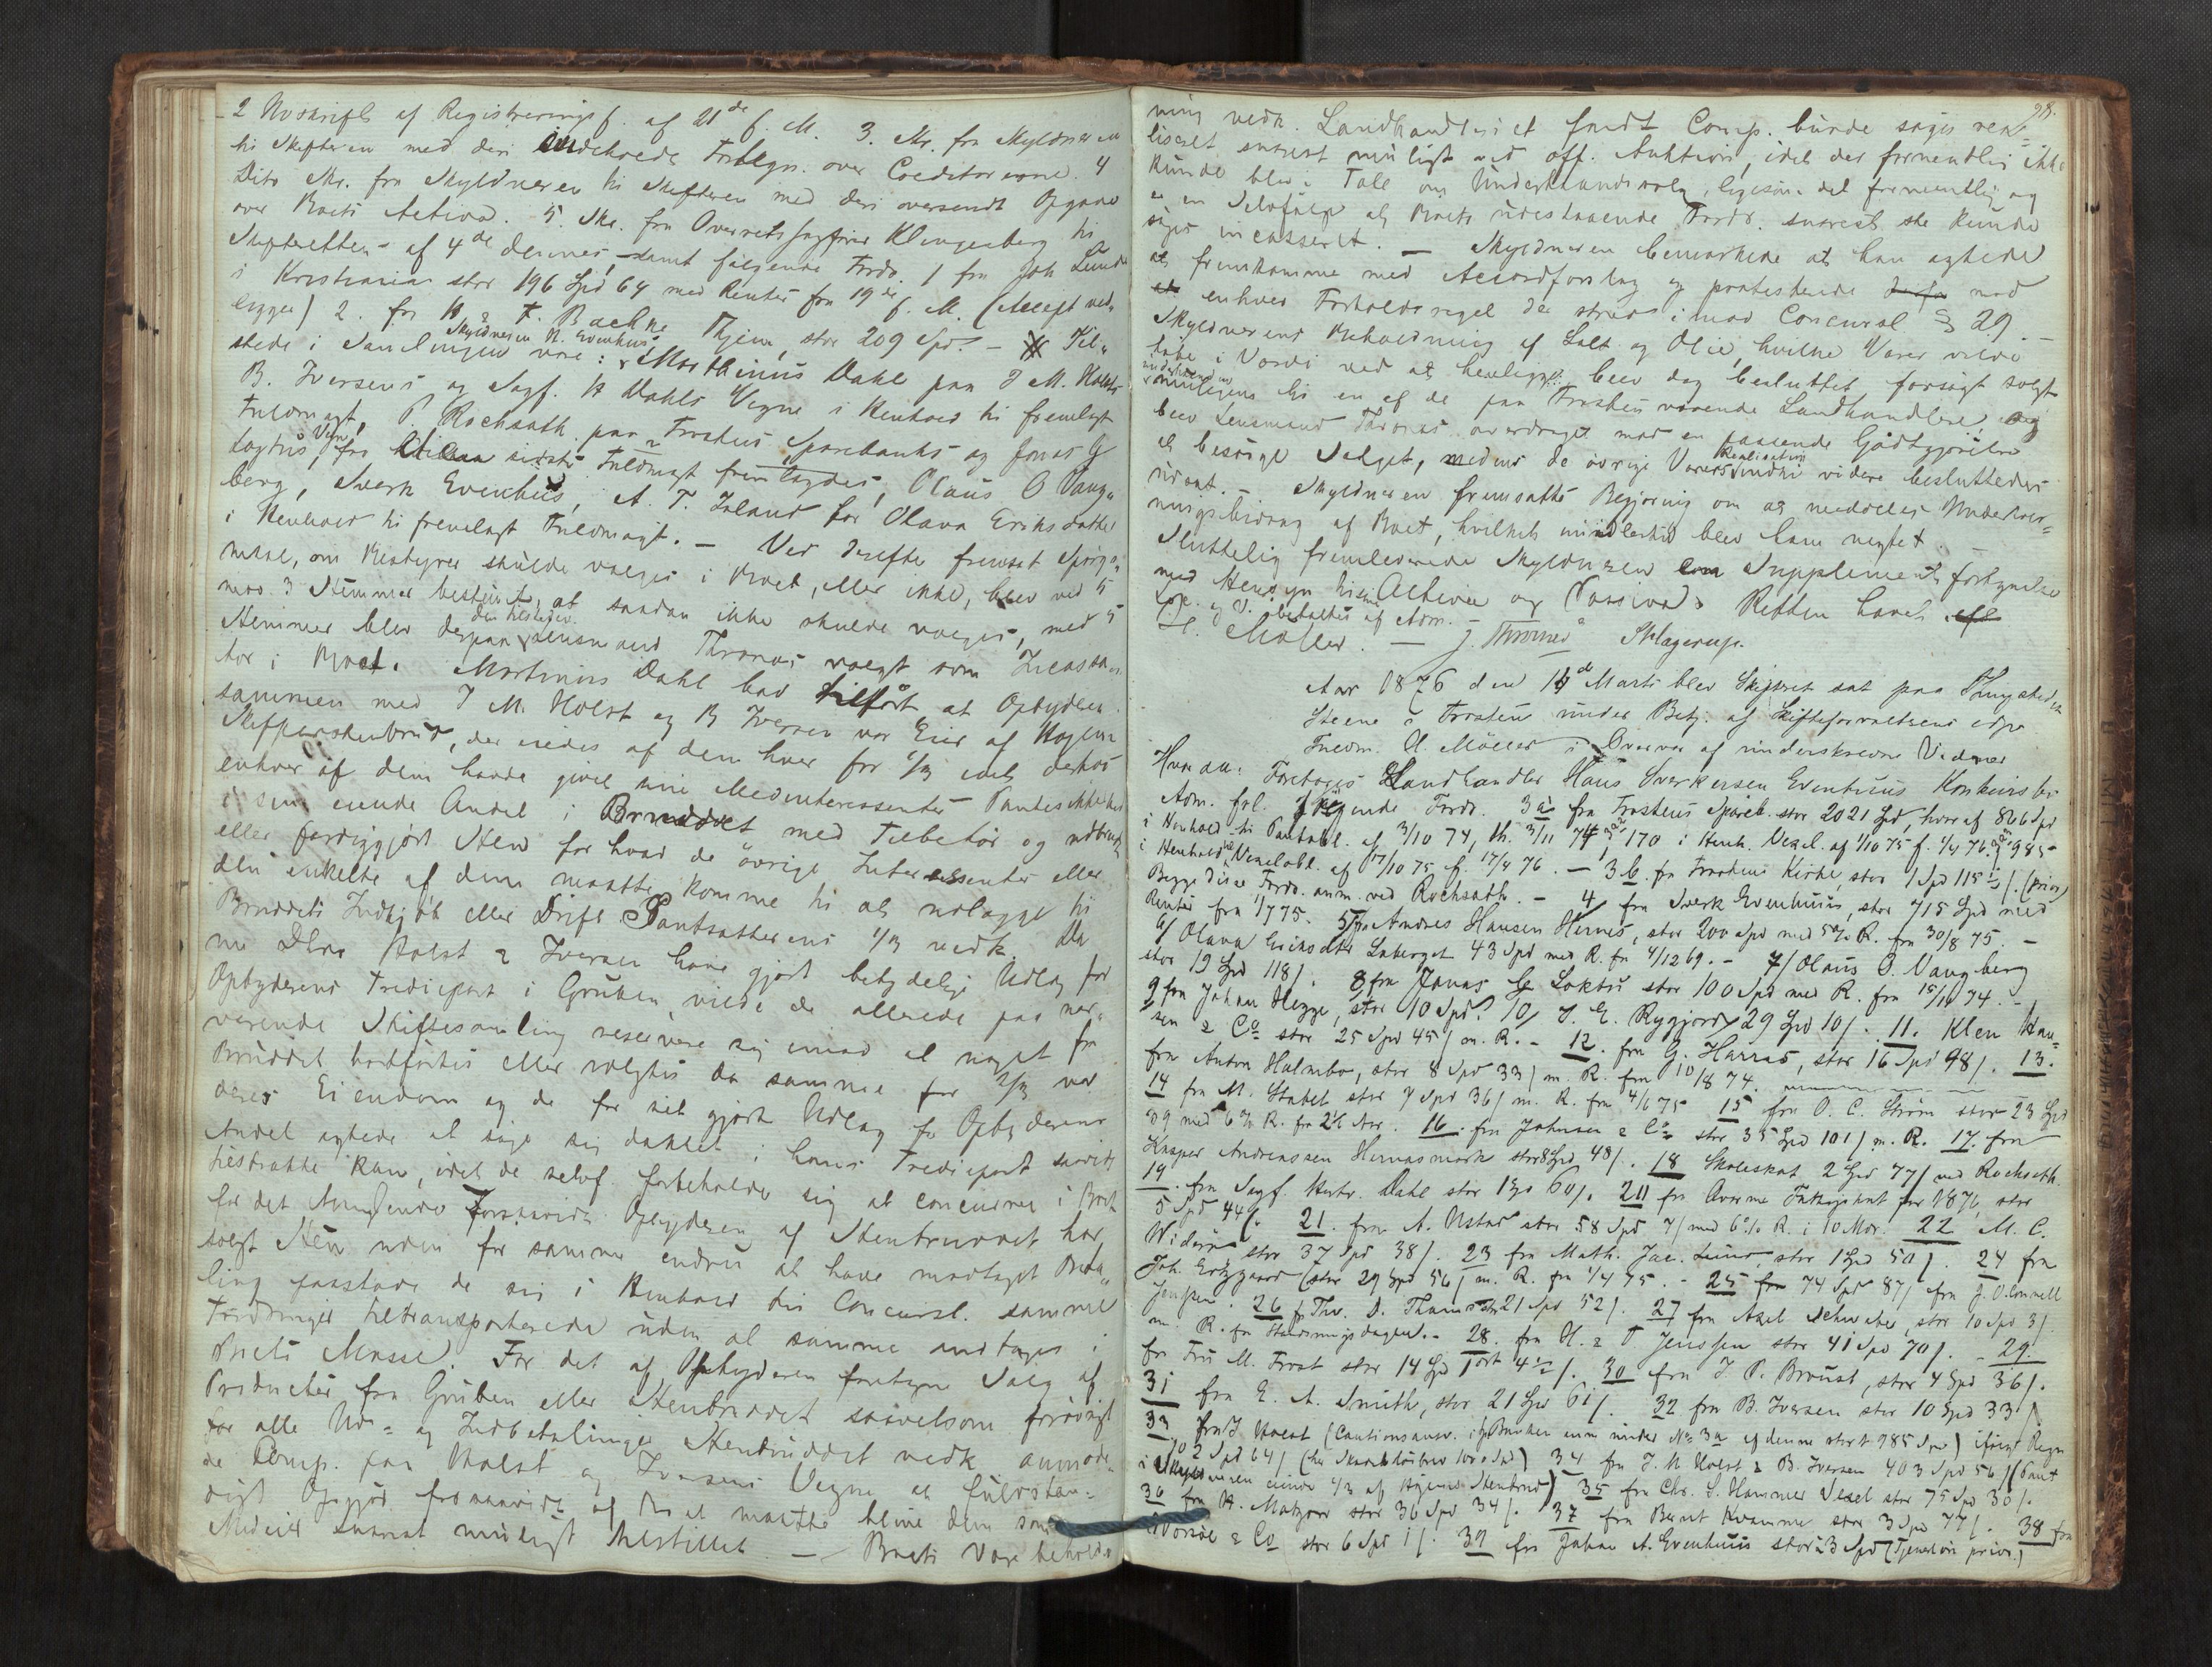 2 Udskrift af Registreringsf. af 21de f. M. 3. Skr. fra Skyldneren
til Skifteren med deri indeholdt Fortegn. over Creditorerne. 4
Dito Skr. fra Skyldneren til Skifteren med deri oversendt Opgave
over Boets Activa. 5. Skr. fra Overretssagfører Klingenberg til
Skifteretten af 4de dennes, samt følgende Fordr. 1 fra Joh Lund
i Kristiania stor 196 Spd 64 med Renter fra 19de f. M. (Accept ved
ligger) 2. fra F. Bachke Thjem, stor 209 Spd. — Til-
stede i Samlingen vare: Skyldneren H. Evenhuus, Marthinus Dahl paa J M. Holsts
B. Iversens og Sagf. H Dahls Vegne i Henhold til fremlagt
Fuldmagt, P. Rochsath paa Frostens Sparebanks og Jonas G
Loktus Vegne, fra sidste Fuldmagt fremlagdes, Olaus O Vang-
berg, Sverk Evenhus, A. T. Inland for Olava Eriksdatter
i Henhold til fremlagt Fuldmagt. — Ved derefter fremsat Spørgs-
maal, om Bestyrer skulde vælges i Boet, eller ikke, blev ved 5
mod 3 Stemmer bestemt, at saadan ikke skulde vælges, med 5
Stemmer blev derpaa den tilstedev. Lensmand Thronæs valgt som Incassa-
tor i Boet. Martinus Dahl bad tilført at Opbyderen
sammen med J M. Holst og B Iversen var Eier af Hogens
Skifferstenbrud, der eiedes af dem hver for 1/3 idet derhos
enhver af dem havde givet sine Medinteressenter Panteskikkerhed
i sin eiende Andel i Bruddet med Tilbehør og udbrudt
eller færdiggjort Sten for hvad de øvrige Interessenter eller
den enkelte af dem maatte komme til at udlægge til
Bruddets Indkjøb eller Drift Pantsætterens 1/3 vedk. Da
nu Dhrr Holst & Iversen have gjort betydelige Udlæg for
Opbyderens Trediepart i Gruben vilde de allerede paa nær-
værende Skiftesamling reservere sig imod at noget fra
Bruddet bortførtes eller solgtes da samme for 2/3 var
deres Eiendom og de for sit gjorte Udlæg for Opbyderens
Andel agtede at søge sig dækket i hans Trediepart saavidt
tilstrække kan, idet de selvf. forbeholder sig at concurrere i Boet
for det Manglende Forsaavidt Opbyderen af Stenbruddet har
solgt Sten uden for samme endnu at have modtaget Beta-
ling paastode de sig i Henhold til Concursl. samme
Fordringer tiltransporterede uden at samme indtages i
Boets Masse. For det af Opbyderen foretagne Salg af
Producter fra Gruben eller Stenbruddet saavelsom forøvrigt
for alle Ud- og Indbetalinger Stenbruddet vedk. anmode-
de Comp. paa Holst og Iversens Vegne at fuldstæn-
digt Opgjør forsaavidt af Boet maatte blive dem som
Medeier snarest muligt tilstillet — Boets Varebehold-
98.
ning vedk. Landhandleriet fandt Comp. burde søges rea-
liseret snarest muligt ved off. Auktion, idet der formentlig ikke
kunde blive Tale om Underhaandssalg, ligesom det formentlig og
er en Selvfølge at Boets udestaaende Fordr. snarest ske kunde
søges incasseret. — Skyldneren bemærkede at han agtede
at fremkomme med Accordforslag og protesterede mod
enhver Forholdsregel der stred imod Concursl. § 29. —
Skyldnerens Beholdning af Salt og Olie, hvilke Varer vilde
tabe i Værdi ved at henligge blev dog besluttet forsøgt solgt
underhaanden muligens til en af de paa Frosten værende Landhandlere, og
blev Lensmand Thronæs overdraget mod en passende Godtgjørelse
at besørge Salget, medens de øvrige Varers Realisation indtil videre besluttedes
udsat. — Skyldneren fremsatte Begjæring om at meddeles Underhold-
ningsbidrag af Boet, hvilket imidlertid blev ham negtet. —
Sluttelig fremleverede Skyldneren Supplements fortegnelse
med Hensyn til sine Activa og Passiva. Retten hævet.
Log. og V. betaltes af Adm. —
H. Møller. — J. Thrones Slagerup.
Aar 1876 den 14d Marts blev Skifteret sat paa Thingstedet
Steene i Frosten under Betj. af Skifteforvalterens edsv
Fuldm. H. Møller i Overvær af underskrevne Vidner
Hvorda: Foretoges Landhandler Hans Sverkersen Evenhuus Konkursbo
Adm. frl. følgende Fordr. 3a fra Frostens Spareb. stor 2021 Spd, hvoraf 866 Spd
i Henhold til Pantobl. af 3/10 74, th. 3/11 74, 170 i Henh. Vexel. af 1/10 75 f. 1/4 76. 985
i Henhold til Vexelobl. af 17/10 75 f. 17/4 76. — 3 b. fra Frostens Kirke, stor 1 Spd 115 ½ /. (prior)
Begge disse Fordr. anm. ved Rochsath. — 4 fra Sverk Evenhuus, stor 715 Spd med
Renter fra 1/7 75. 5 fra Andres Hansen Hernes, stor 200 Spd med 5% R. fra 30/8 75. —
6/ Olava Eriksdtr Laberget 43 Spd med R. fra 4/12 69. — 7/ Olaus O. Vangberg
stor 19 Spd 118/. 8 fra Jonas G Loktu stor 100 Spd med R. fra 15/11 74. —
9 fra Johan Hegge, stor 10 Spd. 10/ J. E. Rygjord 29 Spd 10/. 11. Klen Han-
sen & Co stor 25 Spd 45/ m. R. — 12. fra G. Harras, stor 16 Spd 98/. 13.
fra Anton Halmbo, stor 8 Spd 33/ m. R. fra 10/8 74.
14 fra M. Stabel stor 7 Spd 36/ m. R. fra 4/6 75 15 fra O. C. Strøm stor 23 Spd
59 med 6% R. fra 2½ Aar. 16. fra Johnsen & Co stor 35 Spd 101/ m. R. 17. fra
Kasper Andreassen Hernesmark stor 8 Spd, 48/. 18 Skoleskat 2 Spd 77/ ved Rochsath.
19. fra Sagf. Hartv. Dahl stor 1 Spd 60/. 20 fra Avarme Fattigskat for 1876, stor
5 Spd 44/. 21. fra A. Ustad stor 58 Spd 7/ med 6% R. i 10 Mdr. 22 M. C.
Widerø stor 37 Spd 38/. 23 fra Math. Jac. Lund, stor 1 Spd 50/. 24 fra
Joh. Ertzgaard (stor 29 Spd 56/ m. R. fra 1/4 75. — 25 74 Spd 87/ fra J. O. Connell
Jenssen. 26 f. Thv. D. Thams stor 21 Spd 52/. 27 fra Axel Schwabe, stor 10 Spd 3/
m. R. fra Standsningsdagen. — 28. fra H. & T Jenssen stor 41 Spd 70/. — 29.
fra Fru M. Frost stor 14 Spd 1 ort 4½/. 30 fra J. P. Broust, stor 4 Spd 36/.
31 fra E. A. Smith, stor 21 Spd 61/. 32 fra B. Iversen stor 10 Spd 33/.
33, fra J. Holst (Cautionsansv. Banken anm under No 3a af denne stort 985 Spd) ifølge Regn
702 Spd 64/ (her Skadesløsbrev 1000 Spd) 34 fra J. M Holst & B. Iversen 403 Spd 56/ (Pant
i Skyldneren eiende 1/3 af Hojems Stenbrud) 35 fra Chr. S. Hammer Vexel stor 75 Spd 30/.
36 fra H. Matzow stor 36 Spd 34/. 37 fra Bernt Kvamme stor 3 Spd 77/. 38 fra
Worsøe & Co stor 6 Spd 1/. 39 fra Johan A. Evenhuus stor 23 Spd (Tjenerløn prior.)